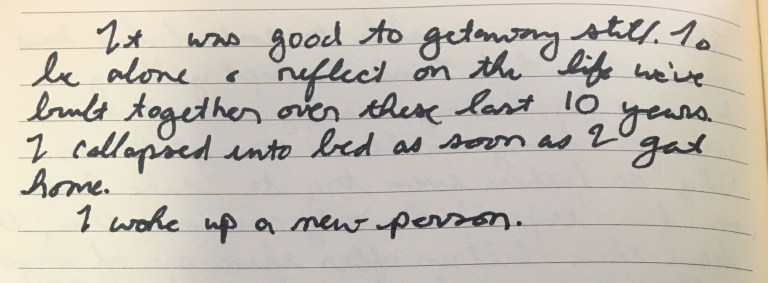 It was good to getaway still. To
be alone & reflect on the life we've
built together over these last 10 years.
I collapsed into bed as soon as I got
home.
I woke up a new person.